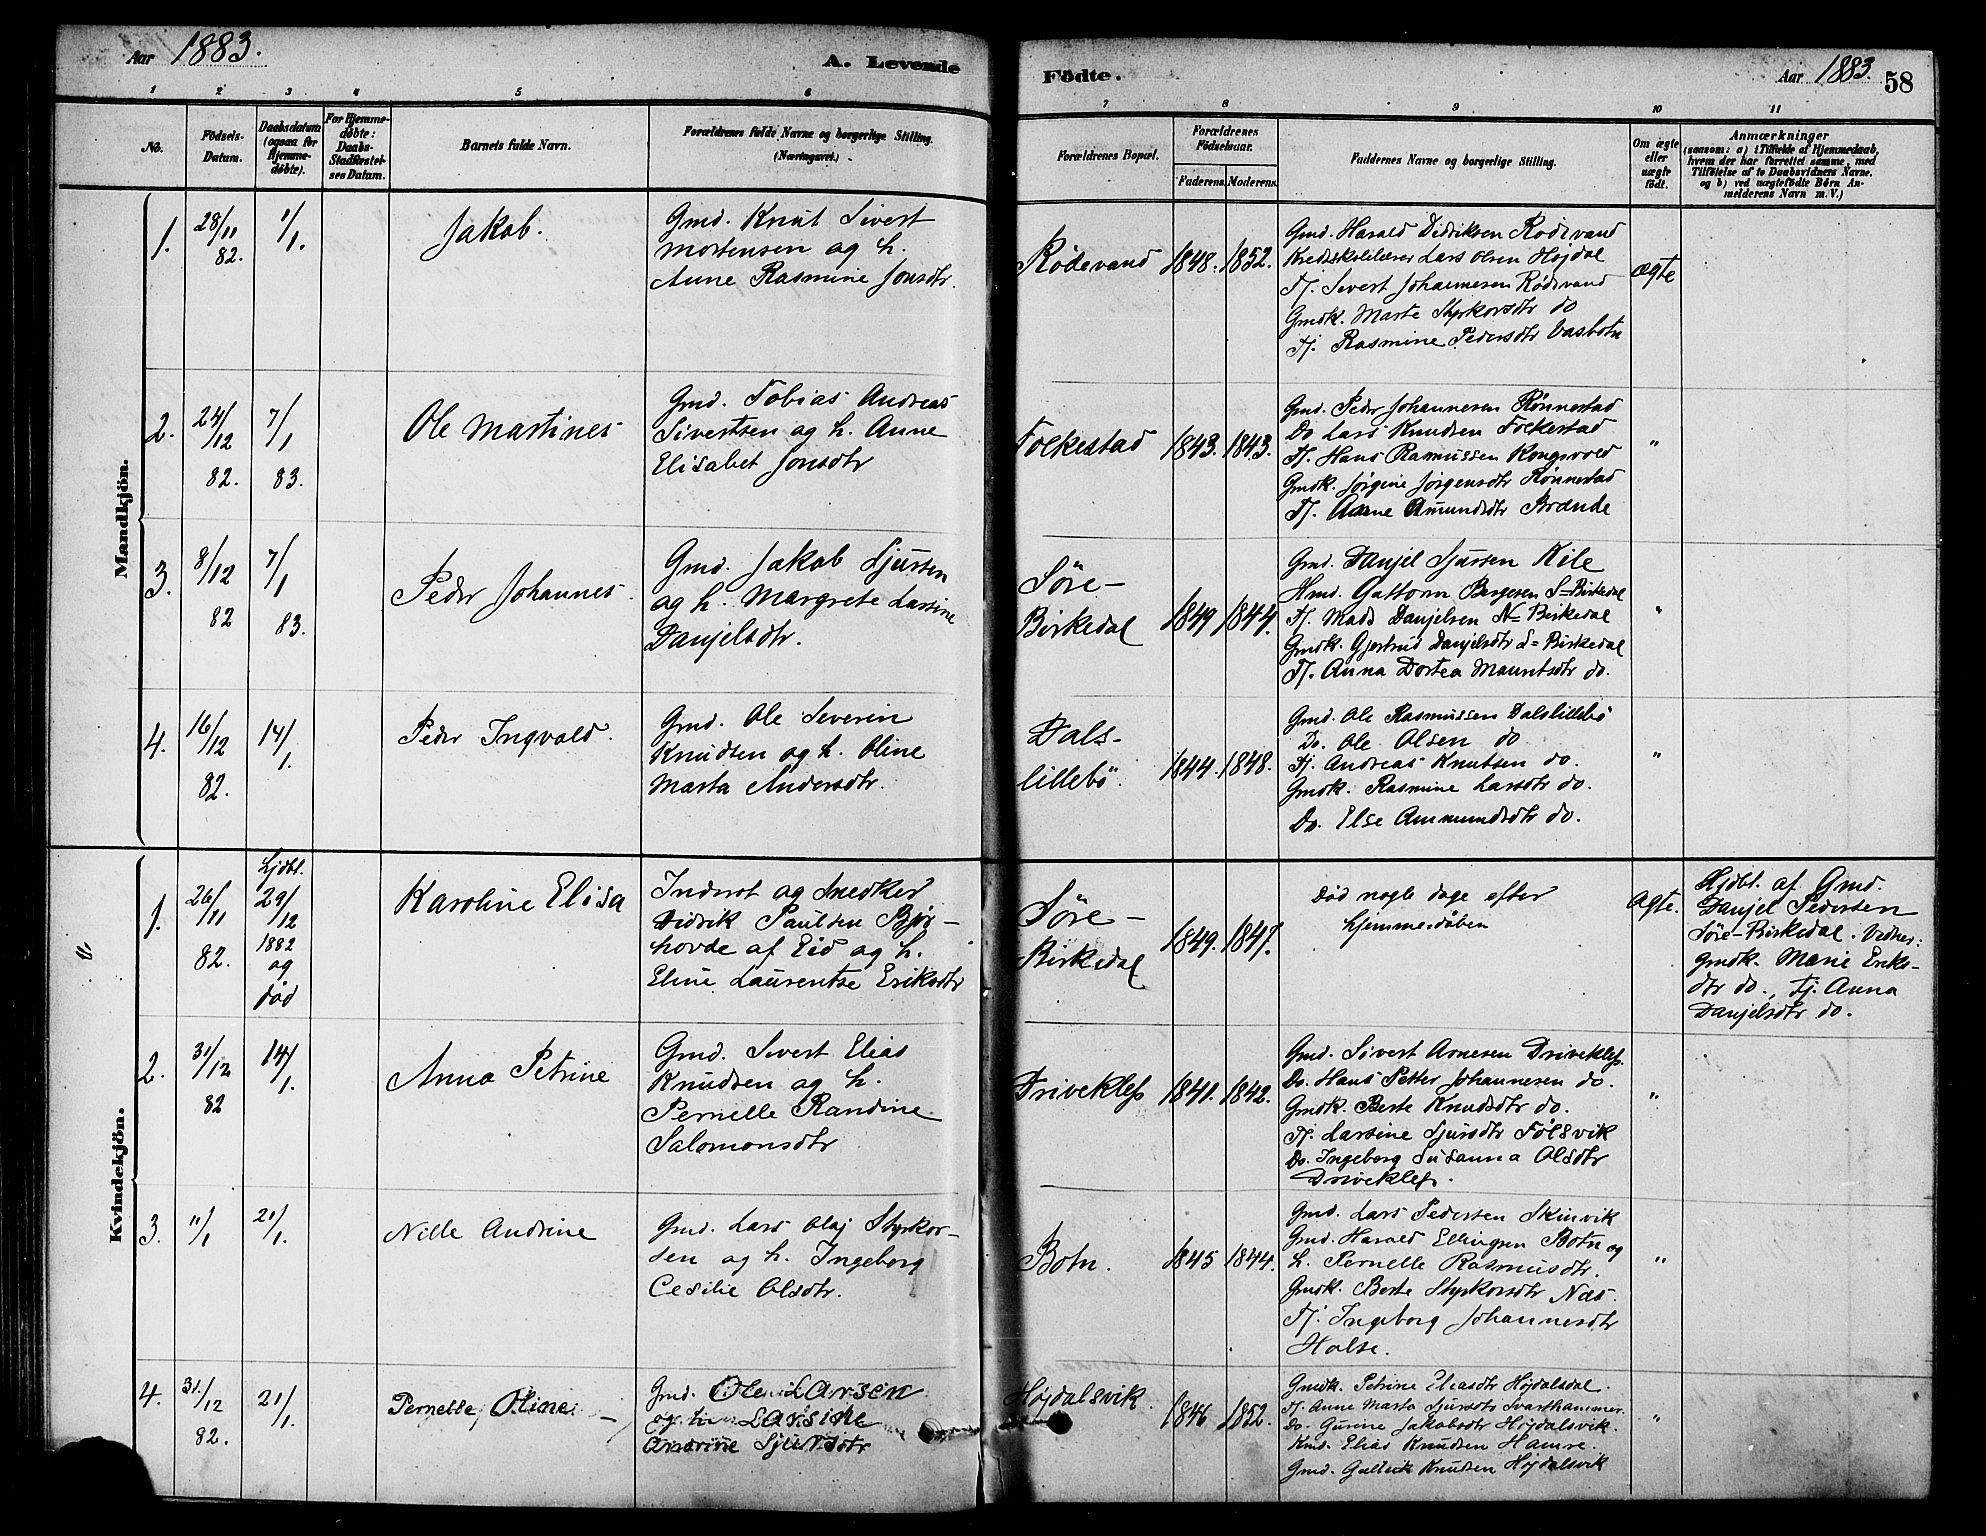 Aar 1883.
A. Levende
Födte.
Aar 1883.
58
1 2 3 4 5 6 7 8 9 10 11
No.
Födsels-
Datum.
Daabsdatum
(ogsaa for
Hjemme-
döbte).
For Hjemme-
döbte:
Daabs-
Stadfæstel-
ses Datum.
Barnets fulde Navn.
Forældrenes fulde Navne og borgerlige Stilling.
(Næringsvei.)
Forældrenes Bopæl.
Forældrenes
Födselsaar.
Faderens. Moderens.
Faddernes Navne og borgerlige Stilling.
Om ægte
eller
uægte
födt.
Anmærkninger
(saasom: a) i Tilfælde af Hjemmedaab,
hvem der har forrettet samme, med
Tilföielse af to Daabsvidners Navne,
og b) ved uægtefödte Börn An-
melderens Navn m. V.)
Mandkjön.
1.
28/11
82.
1/1.
Jakob.
Gmd. Knut Sivert
Mortensen og h.
Anne Rasmine Jonsdtr.
Rödevand
1848. 1852.
Gmd. Harald Didriksen Rödevand
Kredsskolelærer Lars Olsen Højdal
Tj. Sivert Johannesen Rödevand
Gmdk. Marte Styrkorsdtr do
Tj. Rasmine Pedersdtr Vasbotn
ægte
2.
24/12
82.
7/1
83.
Ole Martines
Gmd. Tobias Andreas
Sivertsen og h. Anne
Elisabet Jonsdtr
Folkestad
1843. 1843.
Gmd. Peder Johannesen Rönnestad
Do Lars Knudsen Folkestad
Tj. Hans Rasmussen Kongsvold
Gmdk. Jörgine Jörgensdtr Rönnestad
Tj. Anne Amundsdtr Brænde
"
3.
8/12
82
7/1
83.
Peder Johannes
Gmd. Jakob Sjursen
og h. Margrete Larsine
Danjelsdtr.
Søre-
Birkedal
1849 1844.
Gmd. Danjel Sjursen Kile
Hmd. Guttorm Bergesen S=Birkedal
Tj. Mads Danjelsen N=Birkedal
Gmdk. Gjertrud Danjelsdtr S=Birkedal
Tj. Anna Dortea Mauritsdtr do.
"
4.
16/12
82.
14/1.
Peder Ingvald.
Gmd. Ole Severin
Knudsen og h. Oline
Marta Andersdtr.
Dals-
lillebö.
1844. 1848.
Gmd. Ole Rasmussen Dalslillebö
Do. Ole Olsen do
Tj. Andreas Knutsen do.
Gmdk. Rasmine Larsdtr do.
Do. Else Ammundsdtr do.
"
Kvindekjön.
1.
26/11
82.
Hjdbt.
29/12
1882
og
død
Karoline Elisa
Inderst og Snedker
Didrik Paulsen Bjør-
hovde af Eid og h.
Eline Laurentse Eriksdtr
Søre-
Birkedal
1849. 1847.
Død nogle dage efter
hjemmedåben
Ægte.
Hjdbt. af Gmd.
Danjel Pedersen
Søre-Birkedal. Vidner:
Gmdk. Marie Eriks-
dtr do., Tj. Anna
Danjelsdtr do.
2.
31/12
82
14/1.
Anna Petrine
Gmd. Sivert Elias
Knudsen og h.
Pernelle Randine
Salomonsdtr
Driveklep
1841. 1842.
Gmd. Sivert Arnesen Driveklep.
Do. Hans Petter Johannesen do.
Gmdk. Berte Knudsdtr do.
Tj. Larsine Sjursdtr Følsvik
Do. Ingeborg Susanna Olsdtr
Driveklep.
"
3.
11/1
21/1.
Nille Andrine
Gmd. Lars Olaj Styrkor-
sen og h. Ingeborg
Cesilie Olsdtr.
Botn.
1845 1844.
Gmd. Lars Pedersen Skinvik
Gmd. Harald Ellingsen Botn og
h. Pernelle Rasmusdtr.
Gmdk. Berte Styrkorsdtr Næs.
Tj. Ingeborg Johannesdtr
Halse.
"
4.
31/12
82.
21/1.
Pernelle Oline
Gmd. Ole Larsen
og h. Larsine
Andrine Sjursdtr
Højdalsvik.
1846 1852.
Gmdk. Petrine Eliasdtr Højdalsdal.
Tj. Anne Marta Sjursdtr Svarthammer.
Do. Gurine Jakobsdtr Højdalsvik.
Kmd. Elias Knudsen Hamre.
Gmd. Gullik Knudsen Højdalsvik
"